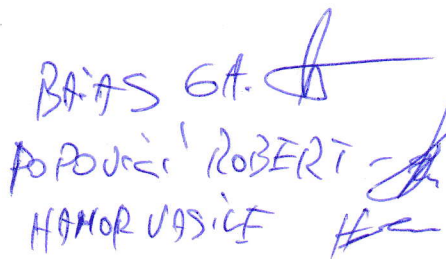 BAIAS GA.
POPOVICI ROBERT -
HAMOR VASILE